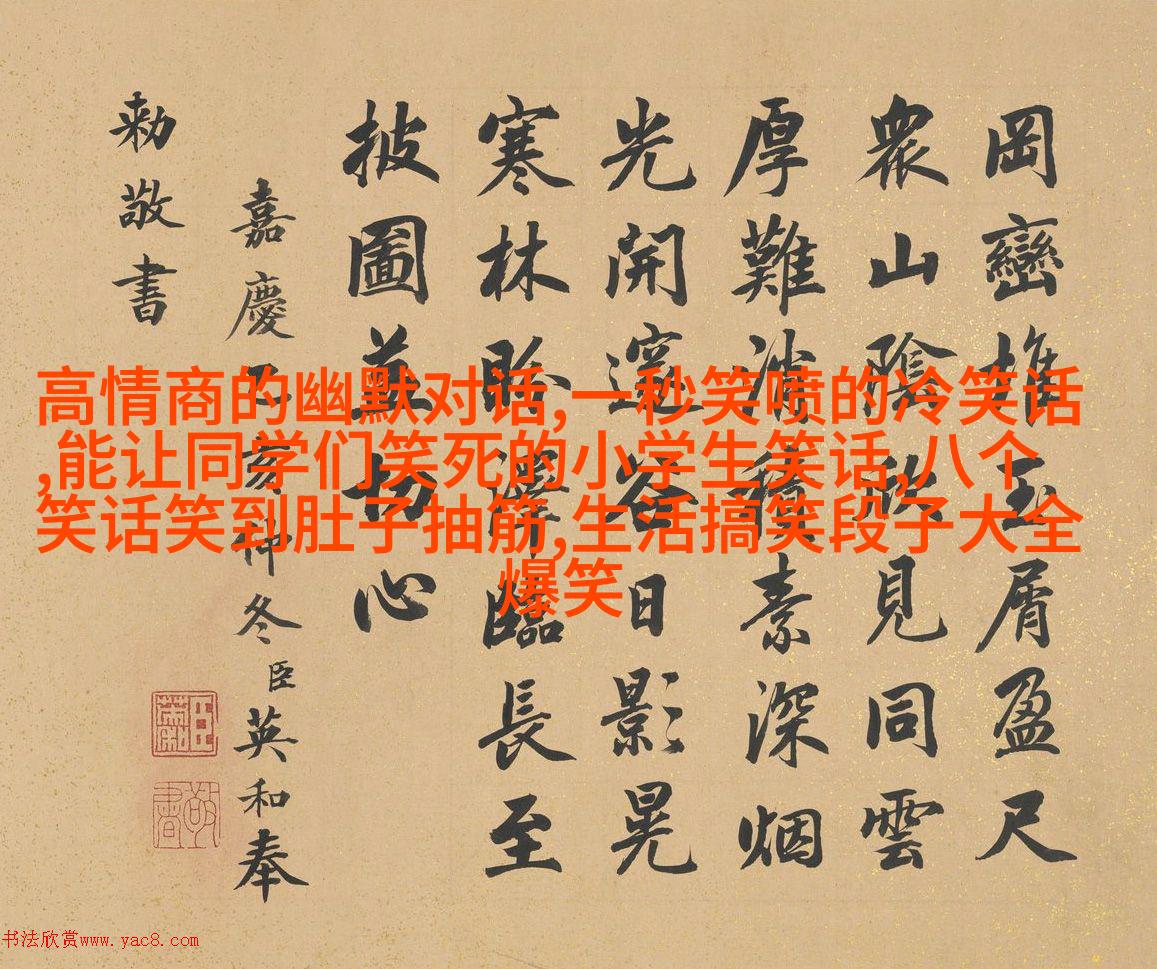 岡巒堆玉屑盈尺
衆山陰欣見同雲
厚難消積素深烟
光開邃谷日影晃
寒林澤臨長至
披圖切心
嘉慶乙亥仲冬臣英和奉
勅敬書
高情商的幽默对话,一秒笑喷的冷笑话
,能让同学们笑死的小学生笑话,八个
笑话笑到肚子抽筋,生活搞笑段子大全
爆笑
敬書
书法欣赏www.yac8.com